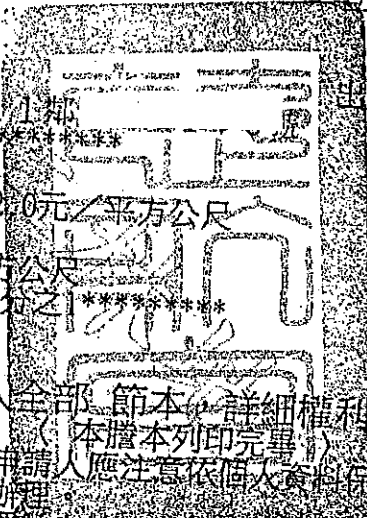 出
1鄰
********
0元／平方公尺
方公尺
分之1*********
人全部 節本，詳細權利
〈 本謄本列印完畢 〉
申請人應注意依個人資料保
辦理。